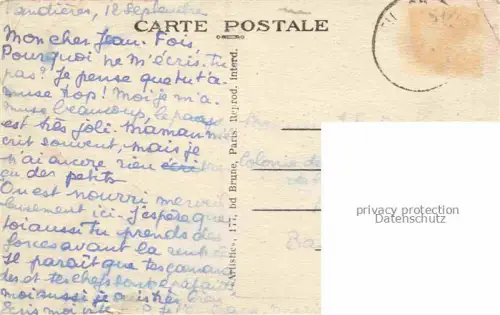 Vandières, 12 Septembre
CARTE POSTALE
Mon cher Jean. Fois
Pourquoi ne m'écris-tu
pas? Je pense que tu t'a
muse trop! Moi je m'a
muse beaucoup, le pays
est très joli. Maman m'é
crit souvent, mais je
n'ai encore rien
çu des petits
On est nourri merveil
leusement ici. J'espère que
toi aussi tu prends des
forces avant la rentrée
Il paraît que tes camara
des et tes chefs sont épatants
moi aussi je suis très bien
Ecris moi vite
"Artistic", 177, bd Brune, Paris. Reprod. interd.
Colonie de
privacy protection
Datenschutz